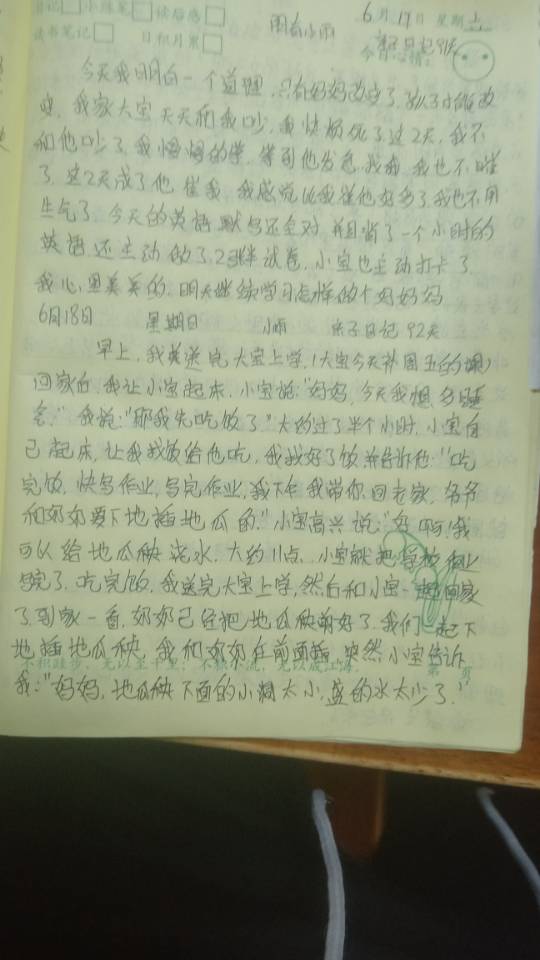 日记□ 小练笔□ 读后感□
读书笔记□ 日积月累□
阴有小雨
6月17日 星期六
亲子日记91天
今日心情：
今天我明白一个道理，只有妈妈改变了，孩子才能改
变，我家大宝天天和我吵，我快烦死了，这2天，我不
和他吵了，我悄悄的学，等到他发色找我，我也不睡
了，这2天成了他催我，我感觉比我催他好多了，我也不用
生气了，今天的英语默写还全对，并且背了一个小时的
英语，还主动做了2张半试卷，小宝也主动打卡了，
我心里美美的，明天继续学习怎样做个好妈妈
6月18日 星期日 小雨 亲子日记92天
早上，我送完大宝上学，(大宝今天补周五的课)
回家的，我让小宝起床，小宝说："妈妈，今天我想多睡
会。"我说："那我先吃饭了。"大约过了半个小时，小宝自
己起床，让我找饭给他吃，我找好了饭并告诉他："吃
完饭，快写作业，写完作业，我下午我带你回老家，爷爷
和奶奶要下地插地瓜的。"小宝高兴说："好啊！我
可以给地瓜秧浇水，大约11点，小宝就把作业
写完了，吃完饭，我送完大宝上学，然后和小宝一起回家
了，到家一看，奶奶已经把地瓜秧剪好了，我们一起下
地插地瓜秧，我和奶奶在前面插，突然小宝告诉
不积跬步，无以至千里；不积小流，无以成江海。 第 页
我："妈妈，地瓜秧下面的小洞太小，盛的水太少了."